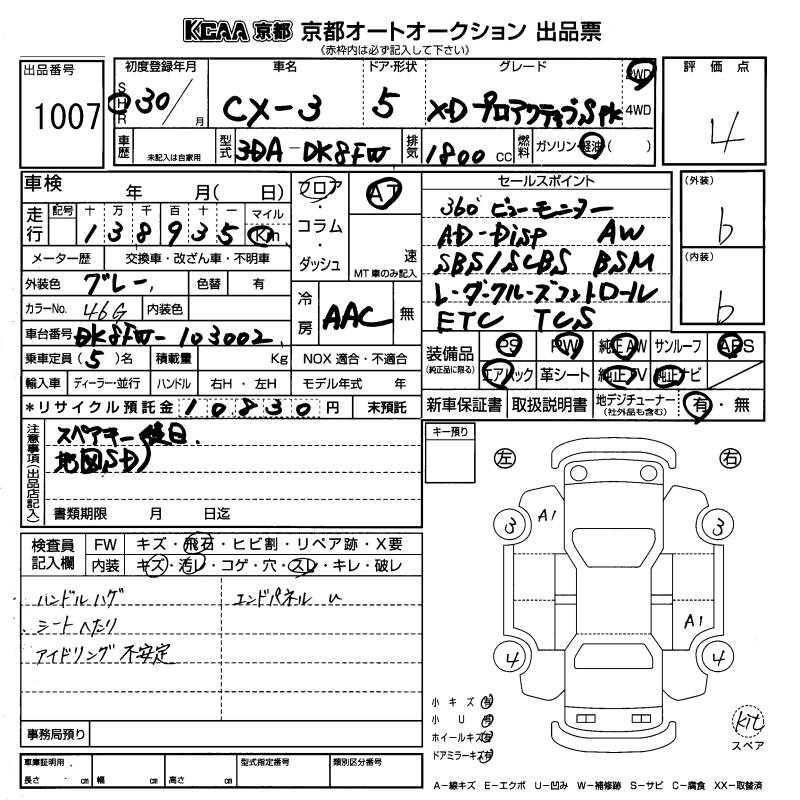 KCAA 京都 京都オートオークション 出品票
《赤枠内は必ず記入して下さい》
出品番号
1007
初度登録年月
S
H
R
30 / 月
車名
CX-3
ドア・形状
5
グレード
XD プロアクティブ S pk
2WD
4WD
評価点
4
車歴
未記入は自家用
型式
3DA-DK8FW
排気
1800 cc
燃料
ガソリン・軽油・( )
車検 年 月( 日)
走行
記号 十 万 千 百 十 一 マイル
138935 Km
メーター歴 交換車・改ざん車・不明車
外装色 グレー 色替 有
カラーNo. 46G 内装色
車台番号 DK8FW-103002
乗車定員(5)名 積載量 Kg
輸入車 ディーラー・並行 ハンドル 右H・左H
フロア
・
コラム
・
ダッシュ
AT
速
MT車のみ記入
冷房
AAC
無
NOX 適合・不適合
モデル年式 年
*リサイクル預託金 10830 円 未預託
セールスポイント
360°ビューモニター
AD-Disp AW
SBS/SCBS BSM
レーダークルーズコントロール
ETC TCS
(外装)
b
(内装)
b
装備品
(純正品に限る)
PS PW 純正AW サンルーフ ABS
エアバック 革シート 純正TV 純正ナビ
新車保証書 取扱説明書 地デジチューナー
(社外品も含む)
有・無
注意事項(出品店記入)
スペアキー後日
地図SD
書類期限 月 日迄
キー預り
左
右
検査員
記入欄
FW キズ・飛石・ヒビ割・リペア跡・X要
内装 キズ・汚レ・コゲ・穴・スレ・キレ・破レ
ハンドルハゲ
エンドパネル U
シートへたり
アイドリング不安定
事務局預り
3
A1
3
A1
4
4
小キズ有
小U有
ホイールキズ有
ドアミラーキズ有
kit
スペア
車庫証明用
長さ cm 幅 cm 高さ cm
型式指定番号
類別区分番号
A-線キズ E-エクボ U-凹み W-補修跡 S-サビ C-腐食 XX-取替済